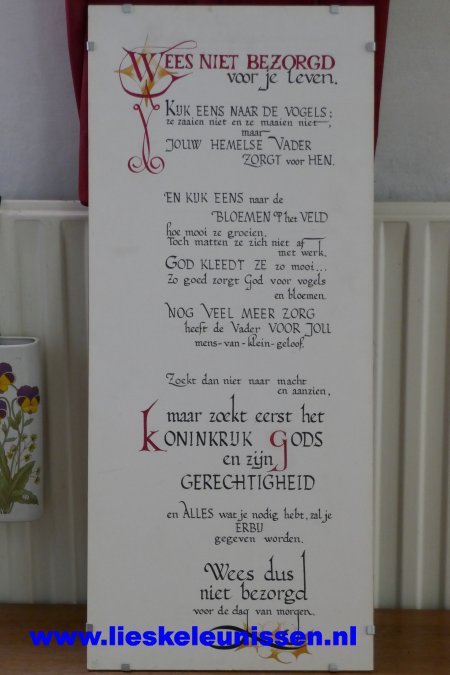 WEES NIET BEZORGD
voor je leven.
KIJK EENS NAAR DE VOGELS:
ze zaaien niet en ze maaien niet,
maar
JOUW HEMELSE VADER
ZORGT voor HEN.
EN KIJK EENS naar de
BLOEMEN op het VELD
hoe mooi ze groeien.
Toch matten ze zich niet af
met werk.
GOD KLEEDT ZE zo mooi...
Zo goed zorgt God voor vogels
en bloemen.
NOG VEEL MEER ZORG
heeft de Vader VOOR JOU
mens-van-klein-geloof.
Zoekt dan niet naar macht
en aanzien,
maar zoekt eerst het
KONINKRIJK GODS
en zijn
GERECHTIGHEID
en ALLES wat je nodig hebt, zal je
ERBIJ
gegeven worden.
Wees dus
niet bezorgd
voor de dag van morgen.
www.lieskeleunissen.nl